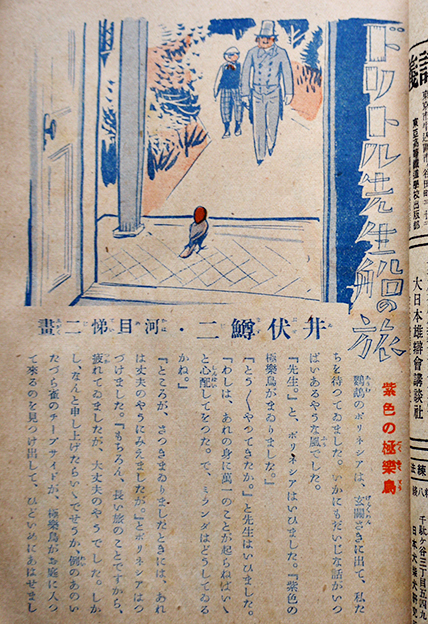 ドリトル先生船の旅
井伏鱒二・河目悌二畫
紫色の極樂鳥
鸚鵡のポリネシアは、玄關さきに出て、私た
ちを待つてゐました。いかにもだいじな話がいつ
ぱいあるやうな風でした。
『先生。』と、ポリネシアはいひました。『紫色の
極樂鳥がまゐりましたな。』
『とう〳〵やつてきたか。』と先生はいひました。
『わしは、あれの身に萬一のことが起らねばいゝ
と心配してをつた。で、ミランダはどうしてゐる
かね。』
『ところが、さつきまゐりましたときには、あれ
は丈夫のやうにみえましたが。』とポリネシアはつ
づけました。『もちろん、長い旅のことですから、
疲れてゐましたが、大丈夫のやうでした。しか
し、なんと申し上げたらいゝでせうか、例のあのい
たづら雀のチープサイドが、極樂鳥がお庭に入つ
て來るのを見つけ出して、ひどいめにあはせまし
東亞高等鐵道學校出版部
大日本雄辯會講談社
千駄ヶ谷三丁目五四九